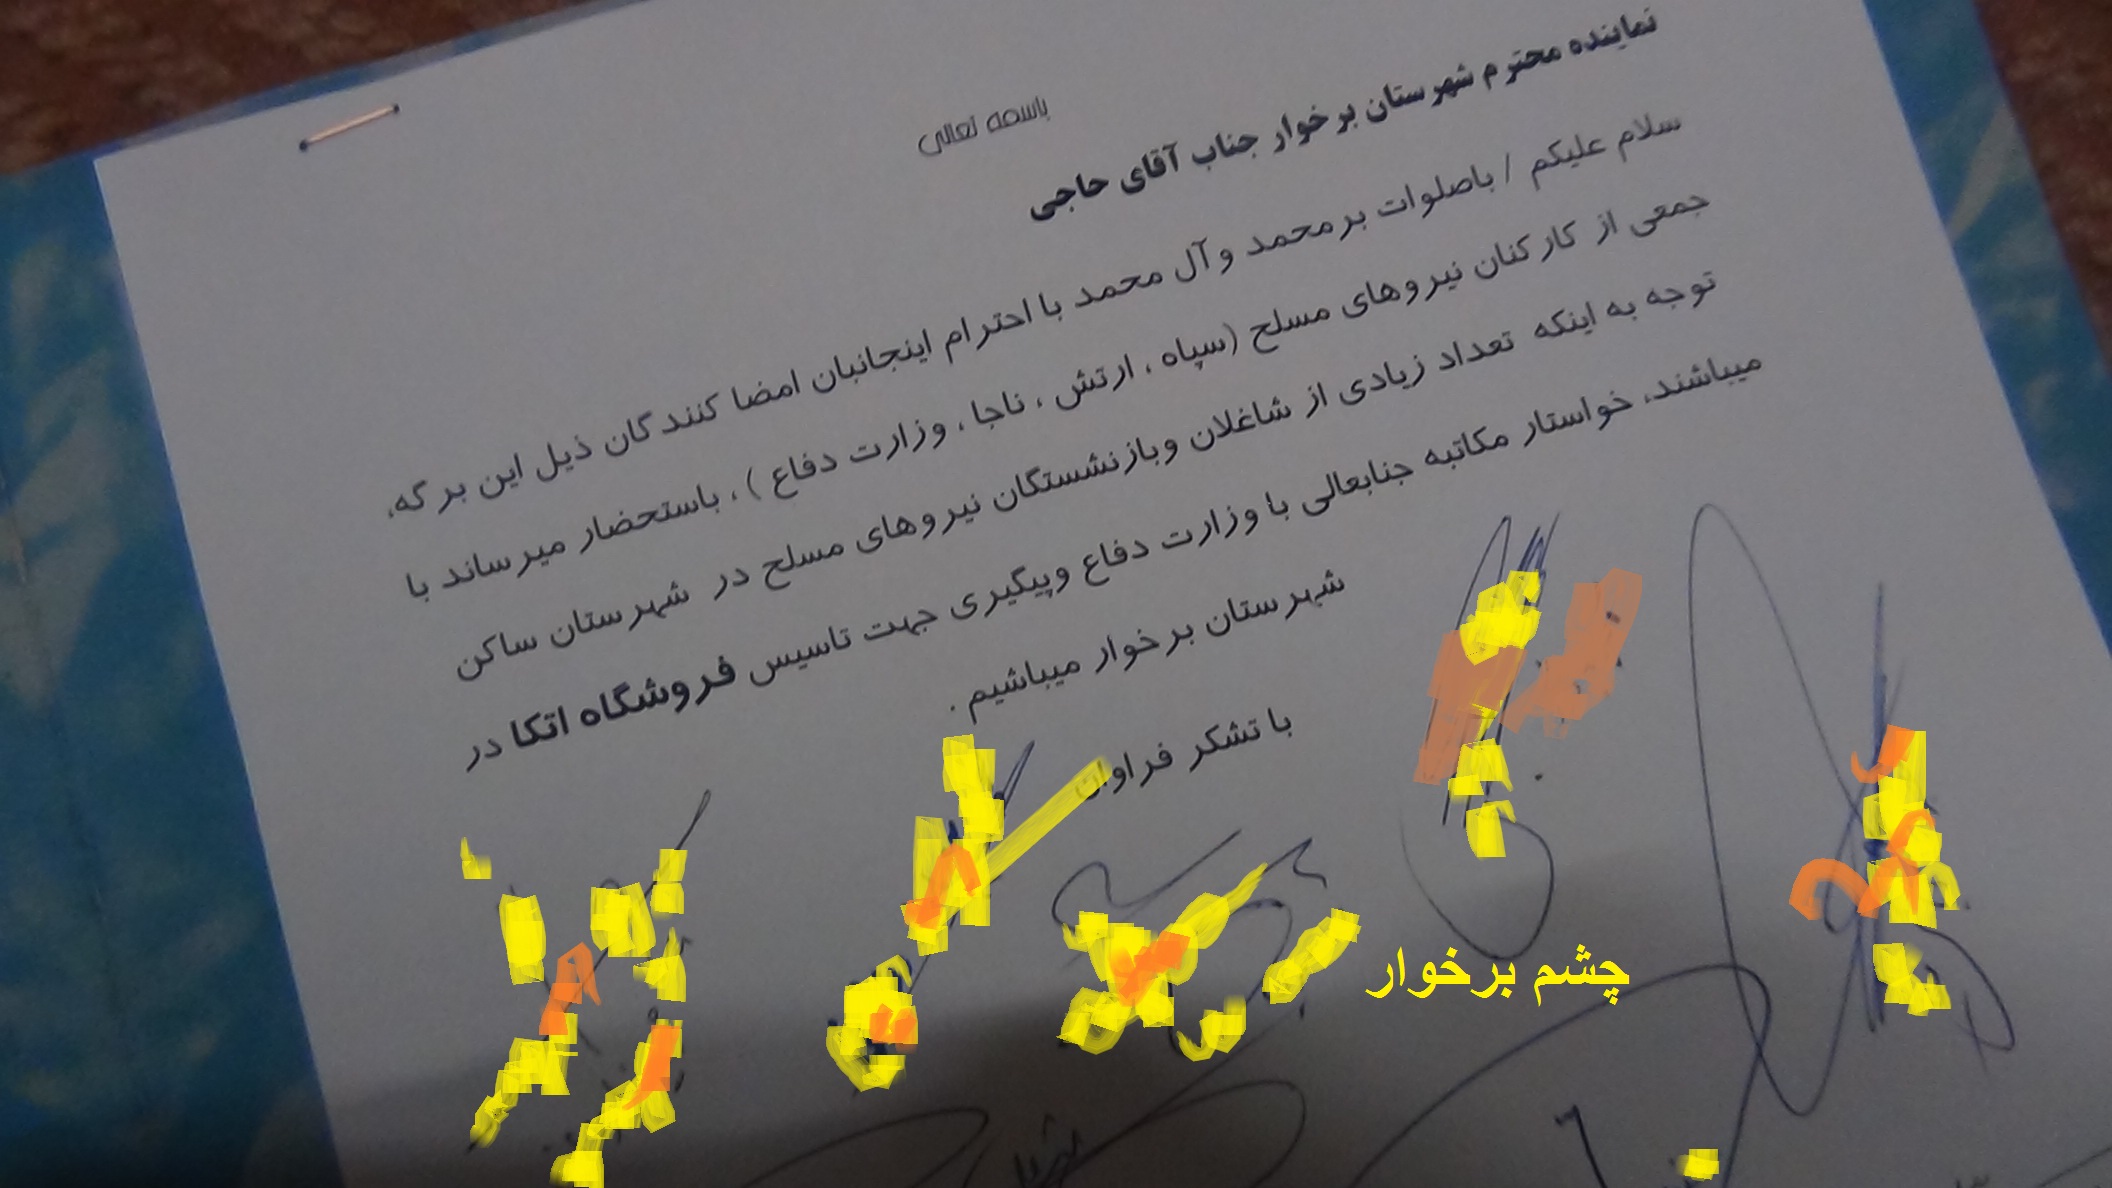 باسمه تعالی
نماینده محترم شهرستان برخوار جناب آقای حاجی
سلام علیکم / باصلوات برمحمد و آل محمد با احترام اینجانبان امضا کنندگان ذیل این برگه،
جمعی از کارکنان نیروهای مسلح (سپاه ، ارتش ، ناجا ، وزارت دفاع ) ، باستحضار میرساند با
توجه به اینکه تعداد زیادی از شاغلان وبازنشستگان نیروهای مسلح در شهرستان ساکن
میباشند، خواستار مکاتبه جنابعالی با وزارت دفاع وپیگیری جهت تاسیس فروشگاه اتکا در
شهرستان برخوار میباشیم .
با تشکر فراوان
چشم برخوار